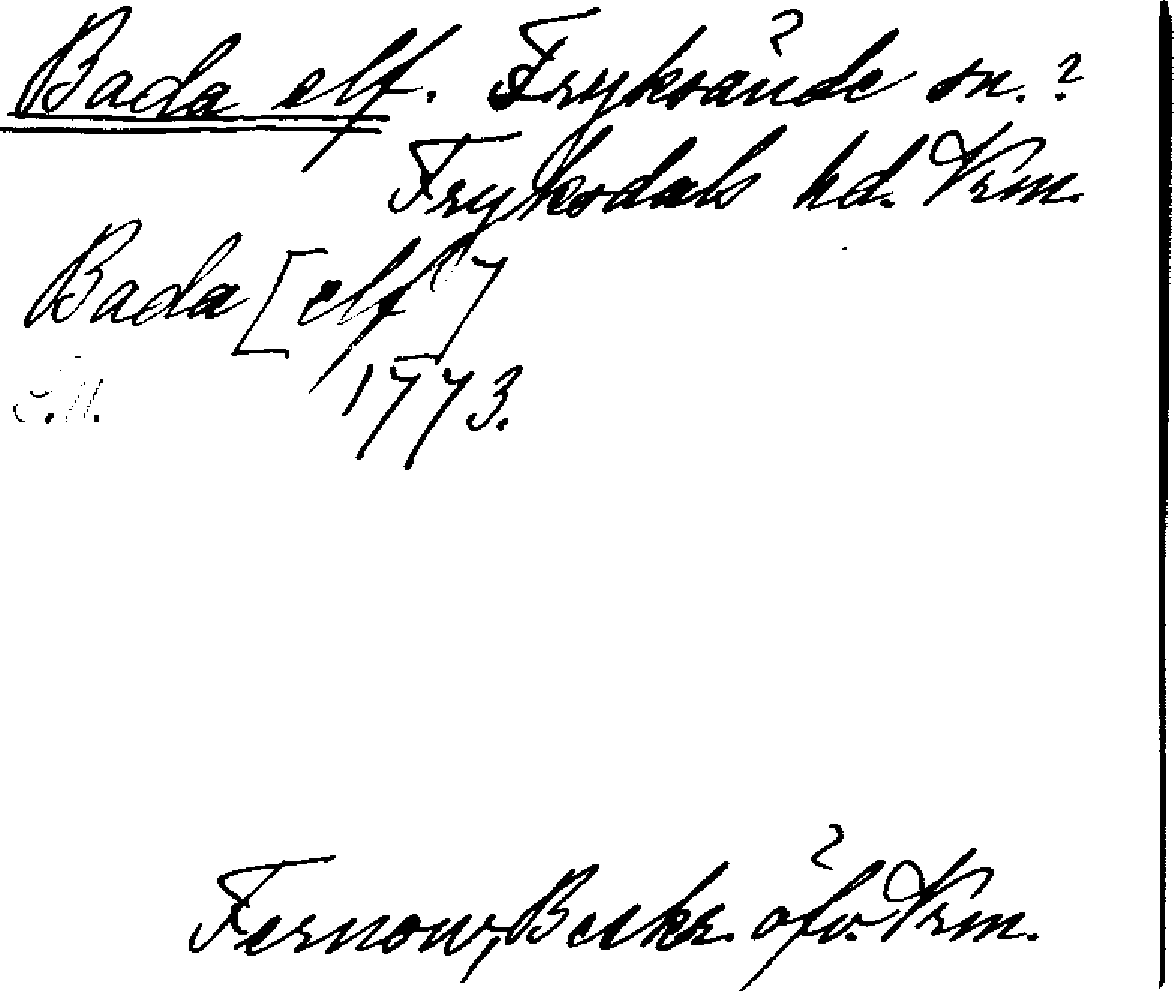 Bada elf. Fryksände sn.?
Fryksdals hd. Vrm.
Bada [elf]
1773.
Fernow, Beskr. öfv. Vrm.